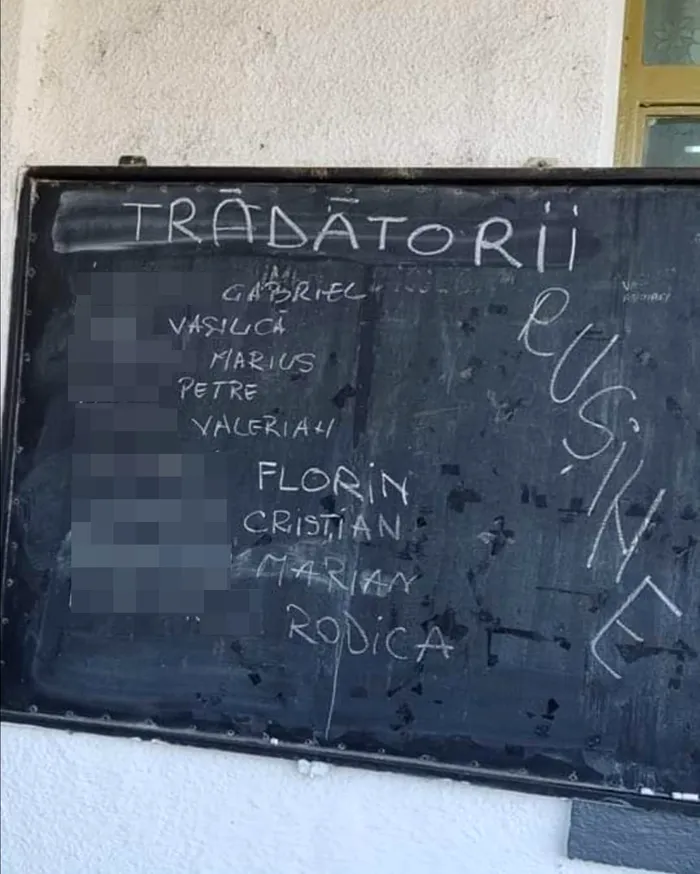 TRĂDĂTORII
GABRIEL
VASILICĂ
MARIUS
PETRE
VALERIAN
FLORIN
CRISTIAN
MARIAN
RODICA
RUȘINE